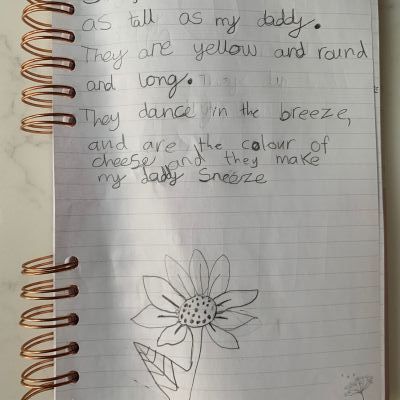 as tall as my daddy.
They are yellow and round
and long.
They dance in the breeze,
and are the colour of
cheese and they make
my daddy Sneeze